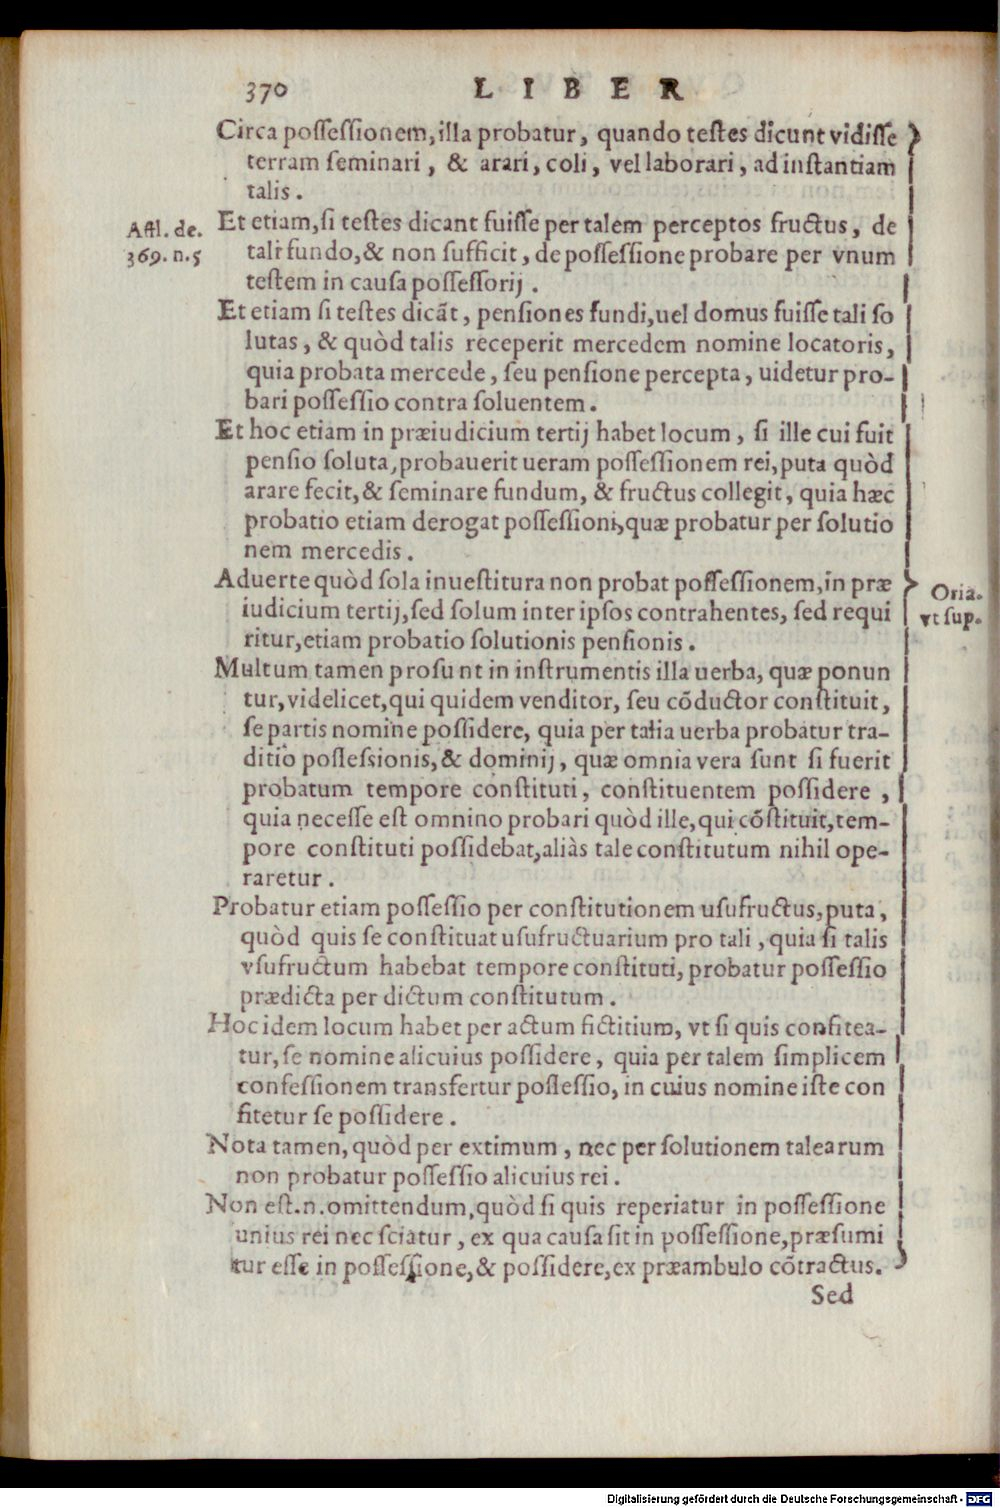 370 LIBER
Circa possessionem, illa probatur, quando testes dicunt vidisse
terram seminari, & arari, coli, vel laborari, ad instantiam
talis.
Affl. de.
369. n. 5
Et etiam, si testes dicant fuisse per talem perceptos fructus, de
tali fundo, & non sufficit, de possessione probare per vnum
testem in causa possessorij.
Et etiam si testes dicãt, pensiones fundi, uel domus fuisse tali so
lutas, & quòd talis receperit mercedem nomine locatoris,
quia probata mercede, seu pensione percepta, uidetur pro-
bari possessio contra soluentem.
Et hoc etiam in præiudicium tertij habet locum, si ille cui fuit
pensio soluta, probauerit ueram possessionem rei, puta quòd
arare fecit, & seminare fundum, & fructus collegit, quia hæc
probatio etiam derogat possessioni, quæ probatur per solutio
nem mercedis.
Aduerte quòd sola inuestitura non probat possessionem, in præ
iudicium tertij, sed solum inter ipsos contrahentes, sed requi
ritur, etiam probatio solutionis pensionis.
Oria.
vt sup.
Multum tamen prosunt in instrumentis illa uerba, quæ ponun
tur, videlicet, qui quidem venditor, seu cõductor constituit,
se partis nomine possidere, quia per talia uerba probatur tra-
ditio possessionis, & dominij, quæ omnia vera sunt si fuerit
probatum tempore constituti, constituentem possidere,
quia necesse est omnino probari quòd ille, qui cõstituit, tem-
pore constituti possidebat, aliàs tale constitutum nihil ope-
raretur.
Probatur etiam possessio per constitutionem usufructus, puta,
quòd quis se constituat usufructuarium pro tali, quia si talis
vsufructum habebat tempore constituti, probatur possessio
prædicta per dictum constitutum.
Hoc idem locum habet per actum fictitium, vt si quis confitea-
tur, se nomine alicuius possidere, quia per talem simplicem
confessionem transfertur possessio, in cuius nomine iste con
fitetur se possidere.
Nota tamen, quòd per extimum, nec per solutionem talearum
non probatur possessio alicuius rei.
Non est. n. omittendum, quòd si quis reperiatur in possessione
unius rei nec sciatur, ex qua causa sit in possessione, præsumi
tur esse in possessione, & possidere, ex præambulo cõtractus.
Sed
Digitalisierung gefördert durch die Deutsche Forschungsgemeinschaft - DFG